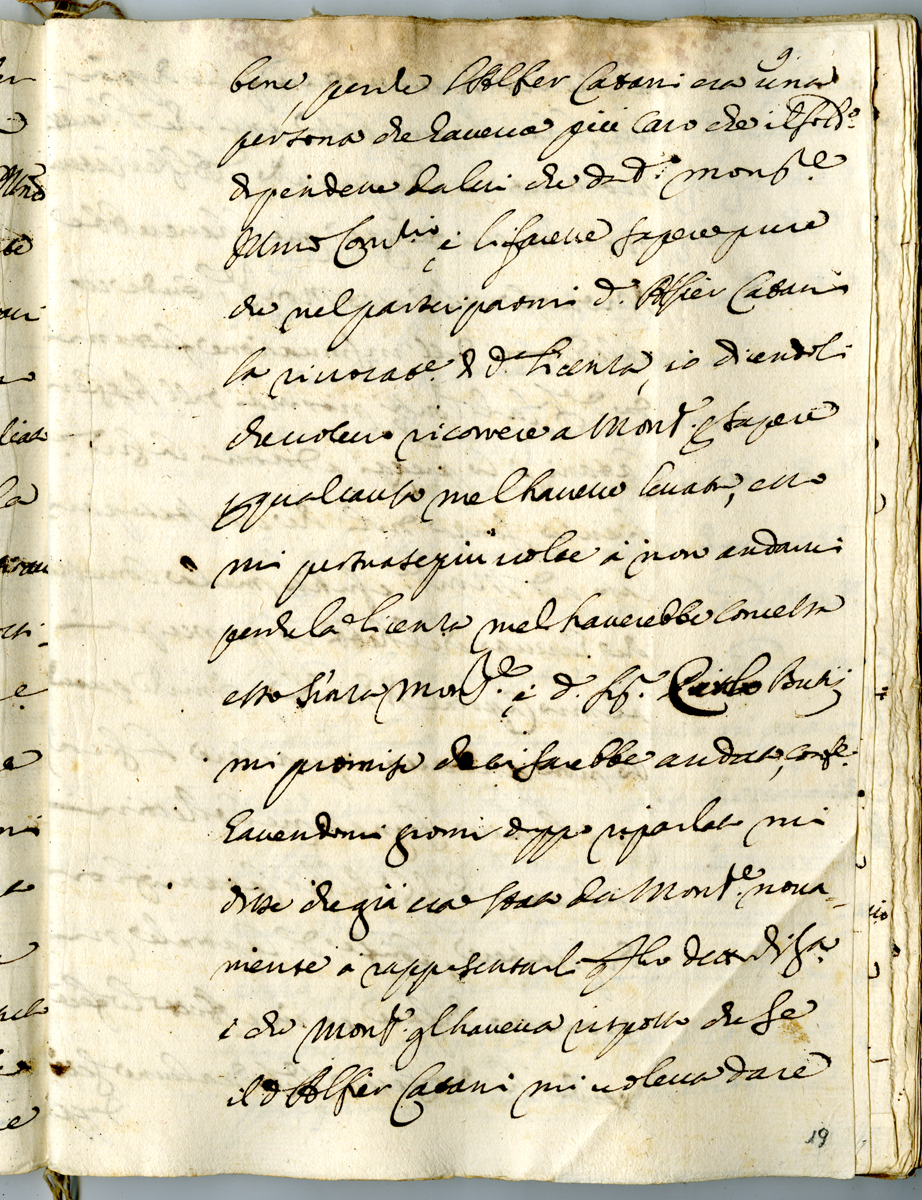 9
bene, perche l'Alfier Catani era una
persona che haveva più caro che il sodd.o
dipendeve da lui che da d.o Mons.re
Ill.mo e li farevve sapere pure
che nel parteciparmi d.o Alfier Catani
la rivocat.e di d.a licenza, io dicendoli
che volevo ricorrere a Mons.re p sapere
p qual causa me l'haveva levata, esso
mi persuase più volte à non andarvi
perche la licenza me l'haverebbe concessa
esso senza Mons.re, e d.o Sig.r Carlo
mi promise che ci sarebbe andato, conf.e
havendomi giorni doppo riparlato mi
disse che già era stato da Mons.re nova-
mente à rappresentarli che detto di sop.a
e che Mons.re gl'haveva risposto che se
il d.o Alfier Catani mi voleva dare
19